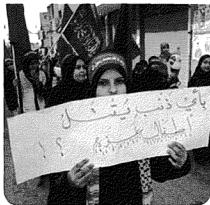 بأي ذنب يُقتل
أطفال غزة ؟!